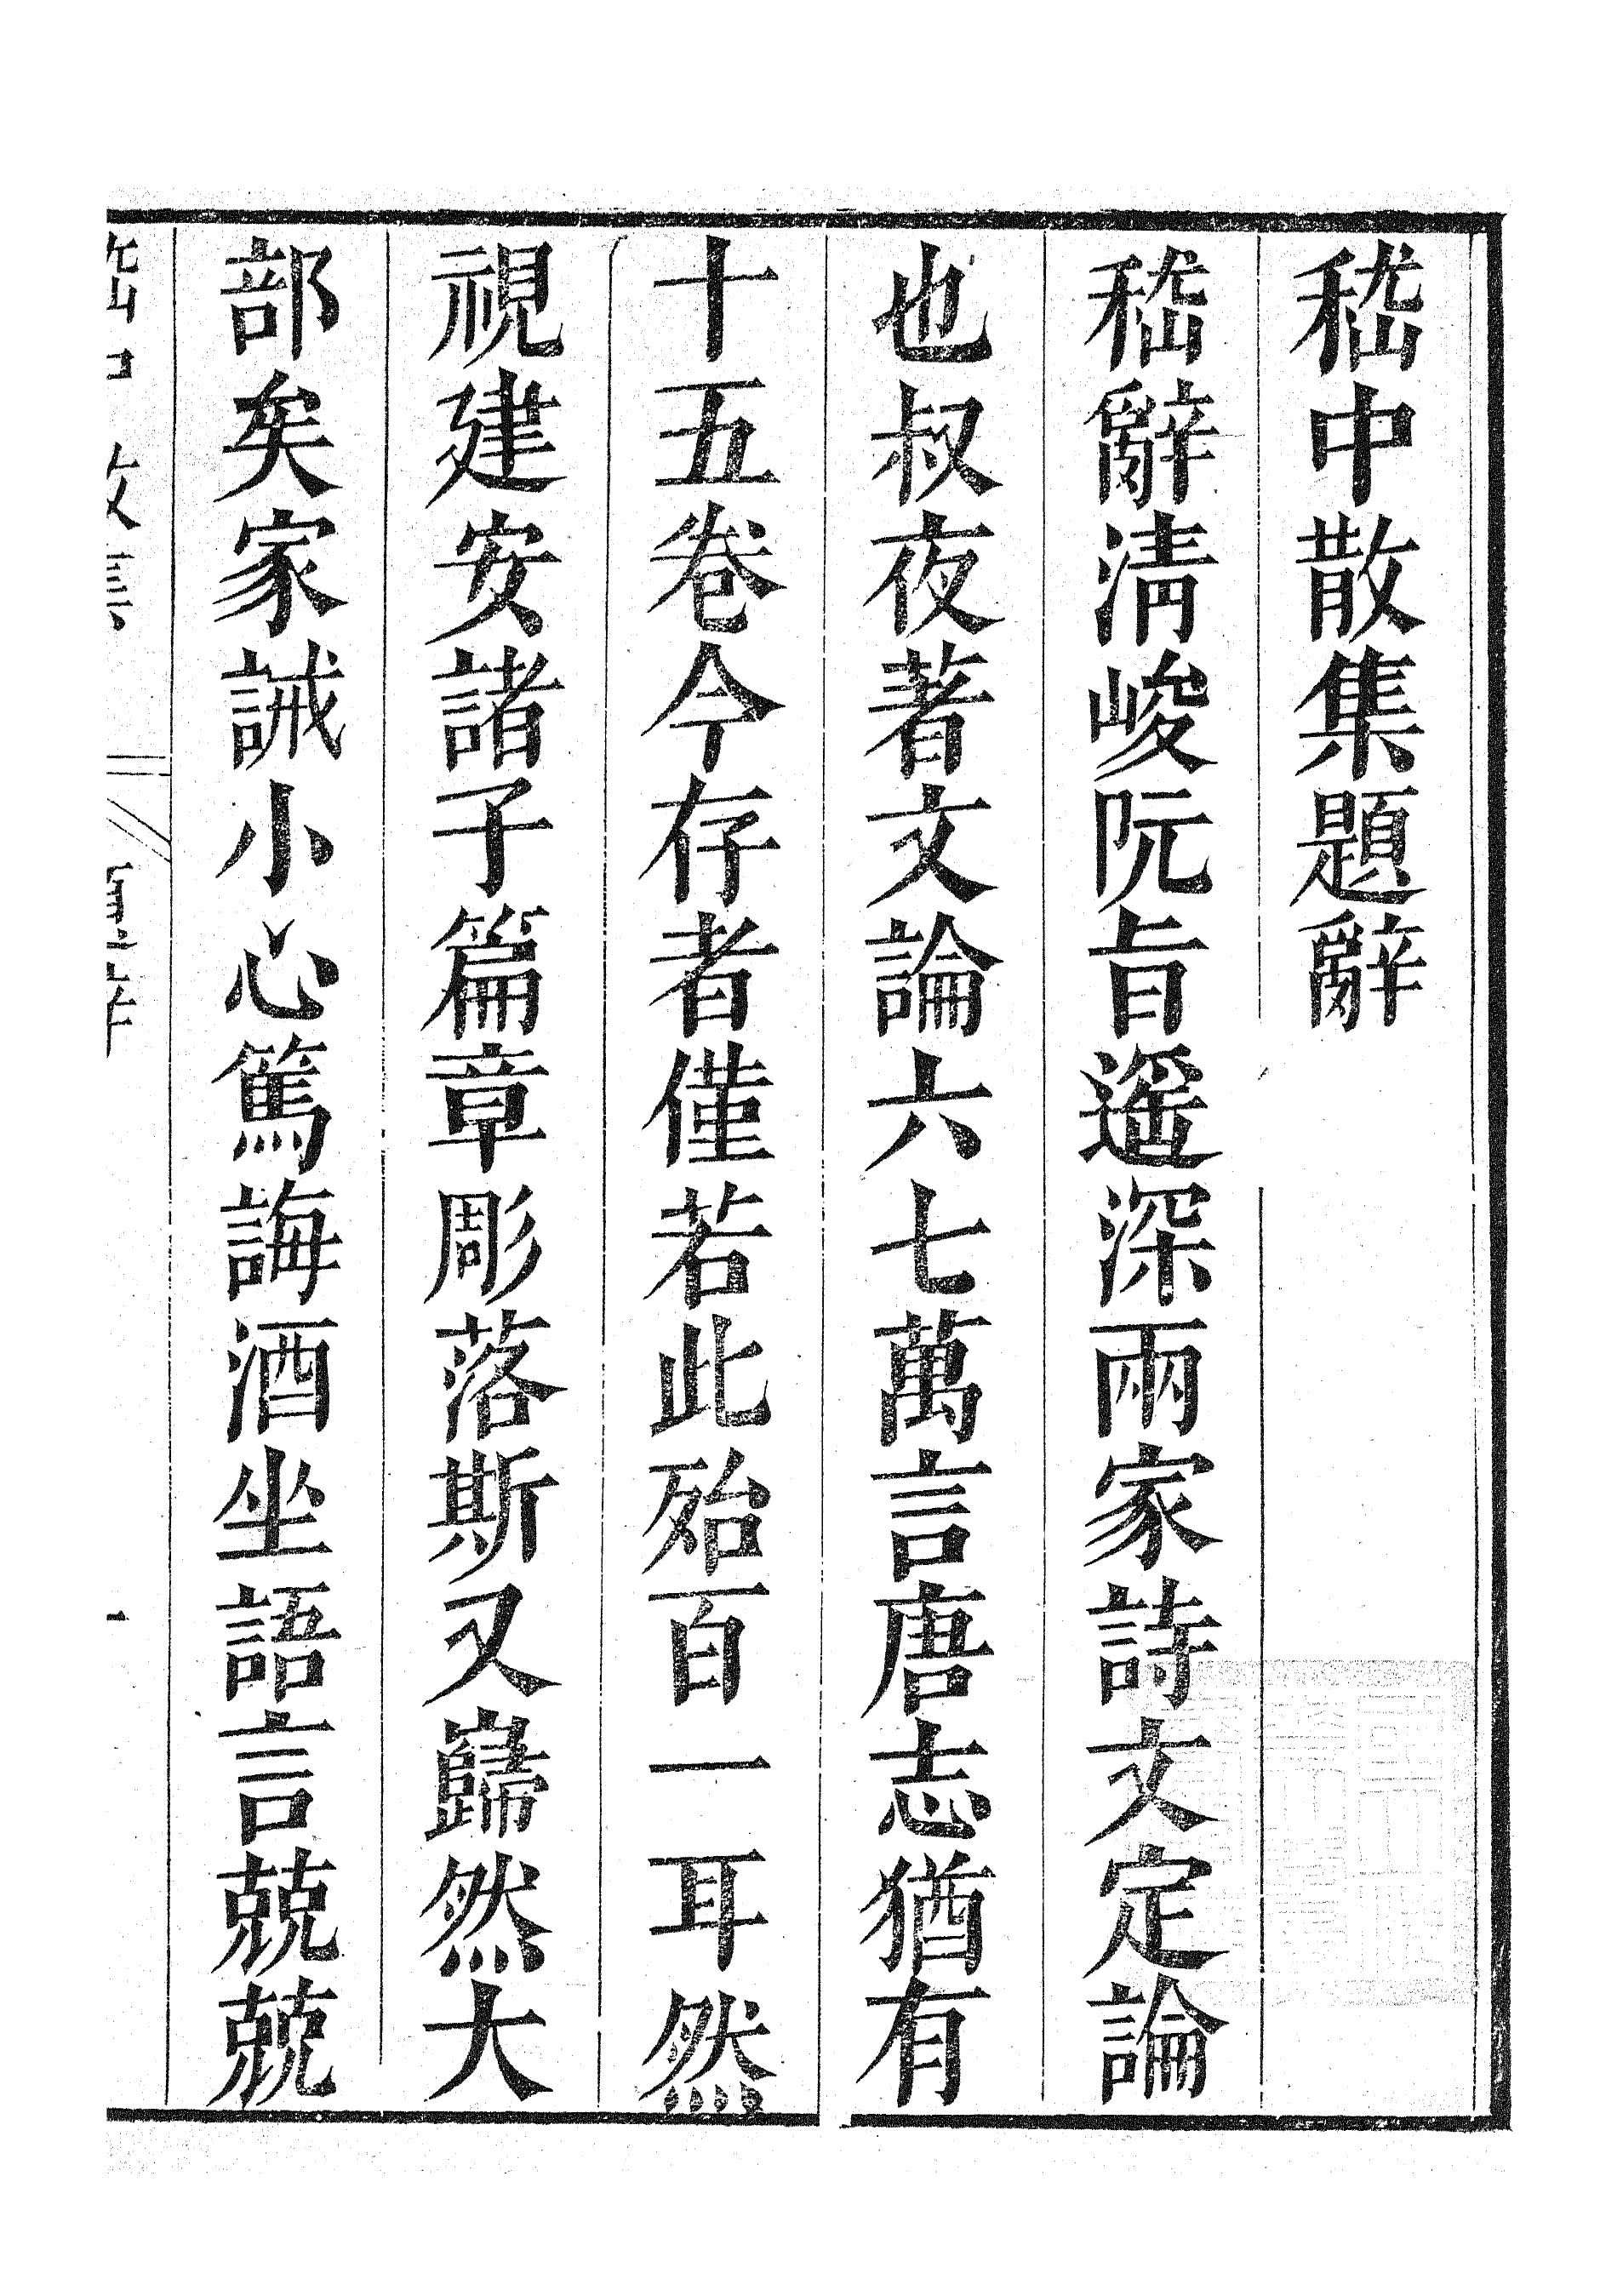 嵇中散集題辭
嵇辭清峻阮旨遥深兩家詩文定論
也叔夜著文論六七萬言唐志猶有
十五卷今存者僅若此殆百一耳然
視建安諸子篇章彫落斯又巋然大
部矣家誡小心篤誨酒坐語言兢兢